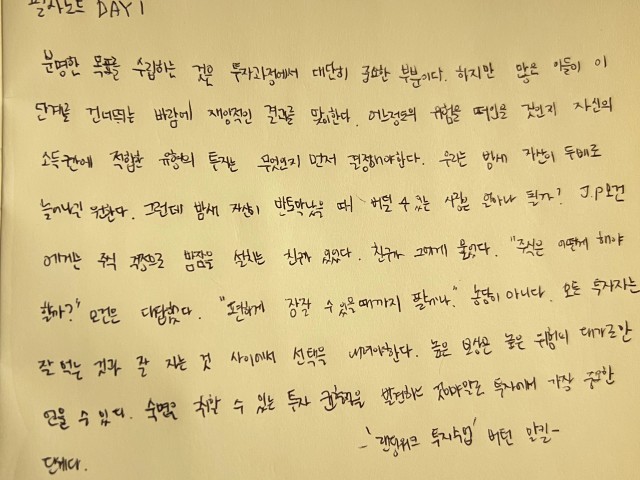 필사노트 DAY 1
분명한 목표를 수립하는 것은 투자과정에서 대단히 중요한 부분이다. 하지만 많은 이들이 이
단계를 건너뛰는 바람에 재앙적인 결과를 맞이한다. 어느정도의 위험을 떠안을 것인지 자신의
소득권에 적합한 유형의 투자는 무엇인지 먼저 결정해야한다. 우리는 밤새 자산이 두배로
늘어나길 원한다. 그런데 밤새 자산이 반토막났을 때 버틸 수 있는 사람은 얼마나 될까? J.P모건
에게는 주식 걱정으로 밤잠을 설치는 친구가 있었다. 친구가 그에게 물었다. "주식은 어떻게 해야
할까?" 모건은 대답했다. "편하게 잠잘 수 있을때까지 팔게나." 농담이 아니다. 모든 투자자는
잘 먹는 것과 잘 자는 것 사이에서 선택을 내려야한다. 높은 보상은 높은 위험의 대가로만
얻을 수 있다. 숙면을 취할 수 있는 투자 균형점을 발견하는 것이야말로 투자에서 가장 중요한
단계다.
-'랜덤워크 투자수업' 버턴 말킬-